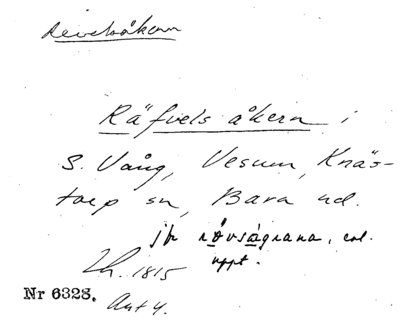 Revelsåkern
Räfvels åkern i
S. Vång, Vesum, Knäs-
torp sn, Bara hd.
jfr rövsågrana, enl.
uppt.
Lh. 1815
Nr 6328. Akt 4.